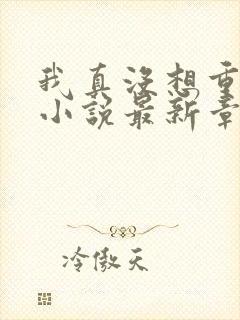 我真没想重
小说最新章
冷傲天